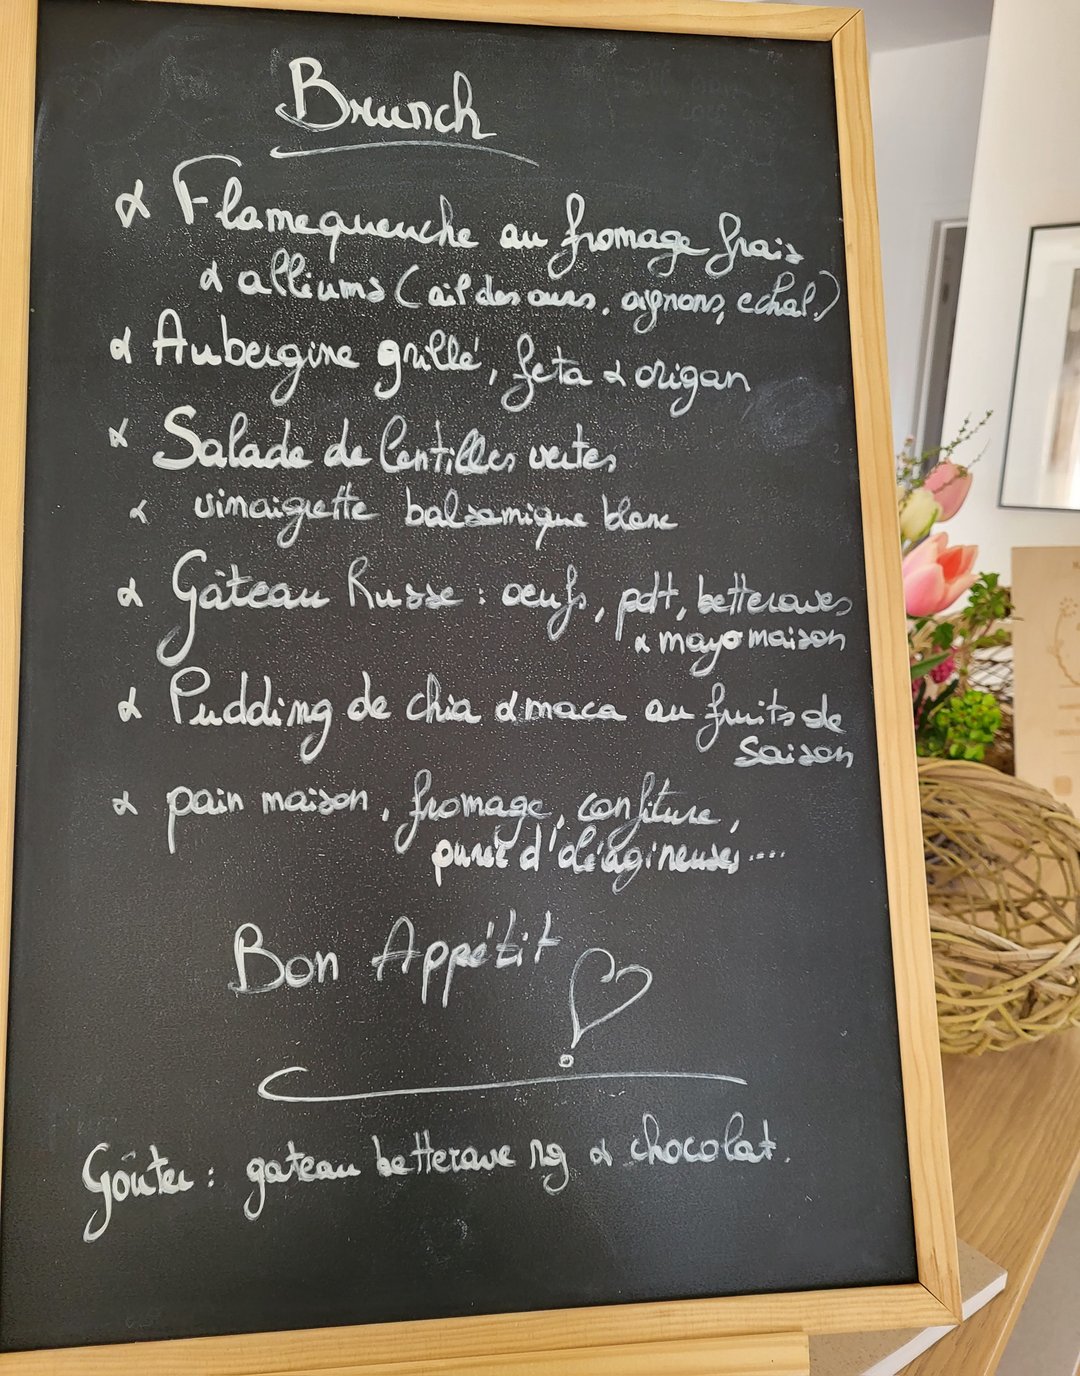 Brunch
& Flamequenche au fromage frais
& alliums (ail des ours, oignons, echal.)
& Aubergine grillé, feta & origan
& Salade de lentilles vertes
& vinaigrette balsamique blanc
& Gâteau Russe : oeufs, pdt, betteraves
& mayo maison
& Pudding de chia & maca au fruits de
saison
& pain maison, fromage, confiture,
purée d'oléagineuses....
Bon Appétit
Goûter : gateau betterave & chocolat.